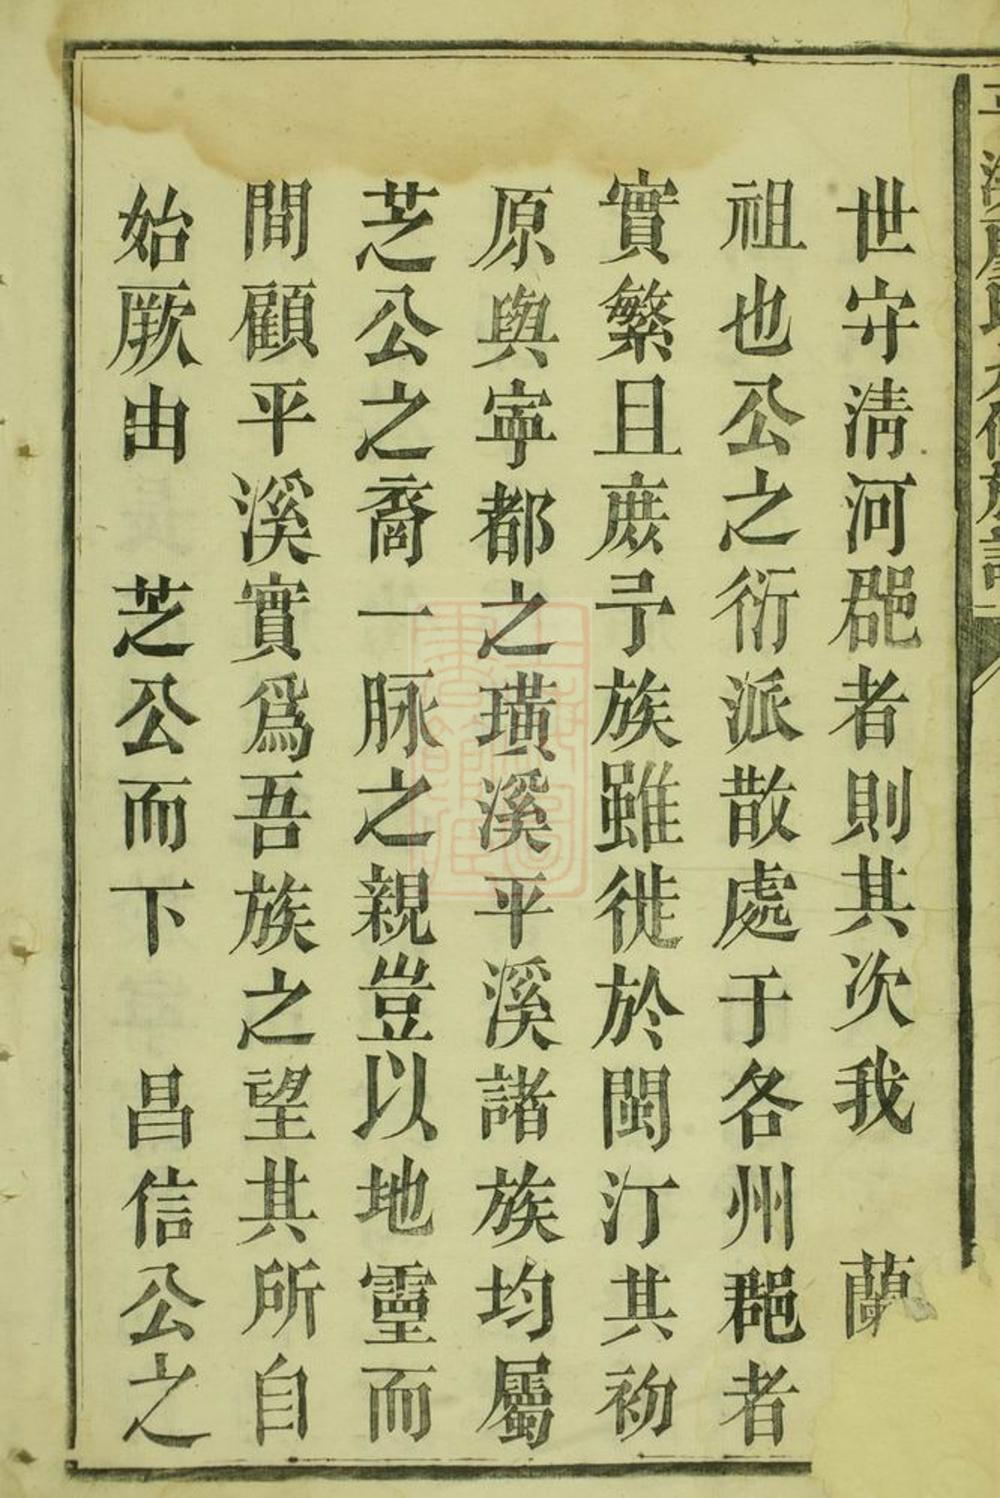 世守清河郡者則其次我　蘭
祖也公之衍派散處于各州郡者
實繁且庶予族雖徙於閩汀其初
原與寧都之璜溪平溪諸族均屬
芝公之裔一脉之親豈以地靈而
間顧平溪實爲吾族之望其所自
始厥由　芝公而下　昌信公之